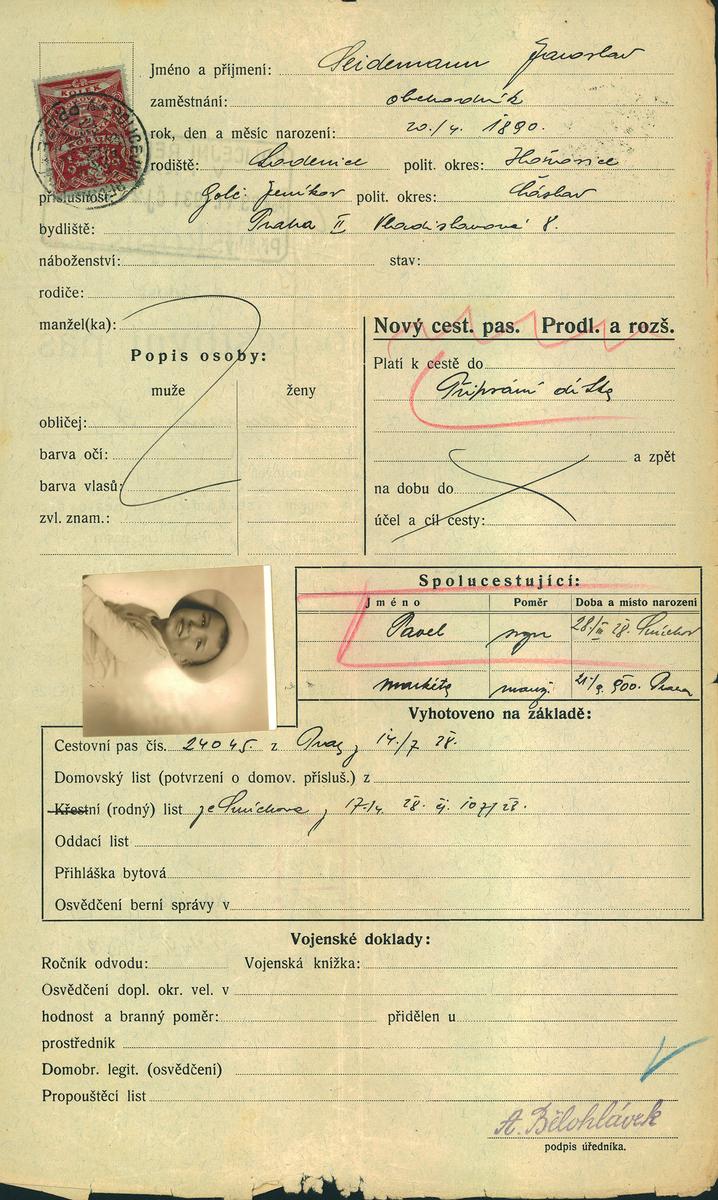 Jméno a příjmení: Seidemann Jaroslav
zaměstnání: obchodník
rok, den a měsíc narození: 20./4. 1890.
rodiště: Lodenice polit. okres: Hořovice
příslušnost: Golč. Jeníkov polit. okres: Čáslav
bydliště: Praha II Vladislavova 8.
náboženství: stav:
rodiče:
manžel(ka):
Popis osoby:
muže ženy
obličej:
barva očí:
barva vlasů:
zvl. znam.:
Nový cest. pas. Prodl. a rozš.
Platí k cestě do
Připsání dítka
a zpět
na dobu do
účel a cíl cesty:
Spolucestující:
Jméno Poměr Doba a místo narození
Pavel syn 28./III 28. Smíchov
Markéta manž. 21/9. 900. Praha
Vyhotoveno na základě:
Cestovní pas čís. 24045. z Prahy 14./7 28.
Domovský list (potvrzení o domov. přísluš.) z
Křestní (rodný) list ze Smíchova, 17./4. 28. čj. 107/28.
Oddací list
Přihláška bytová
Osvědčení berní správy v
Vojenské doklady:
Ročník odvodu: Vojenská knížka:
Osvědčení dopl. okr. vel. v
hodnost a branný poměr: přidělen u
prostředník
Domobr. legit. (osvědčení)
Propouštěcí list
A. Bělohlávek
podpis úředníka.